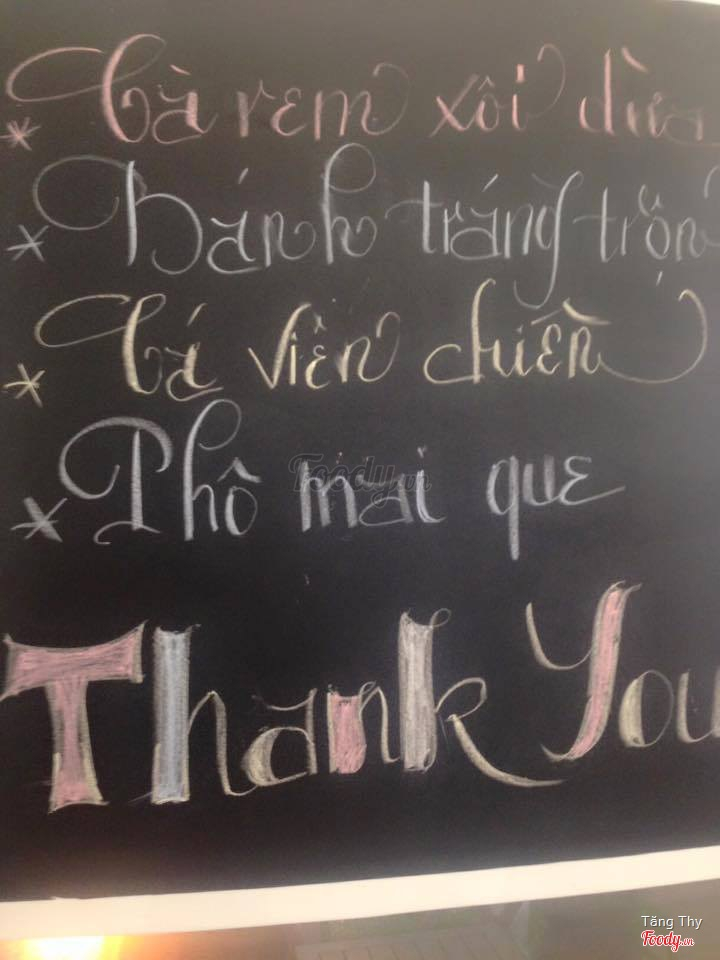 * Cà rem xôi dừa
* Bánh tráng trộn
* Cá viên chiên
* Phô mai que
Foody.vn
Thank You
Tăng Thy
Foody.vn